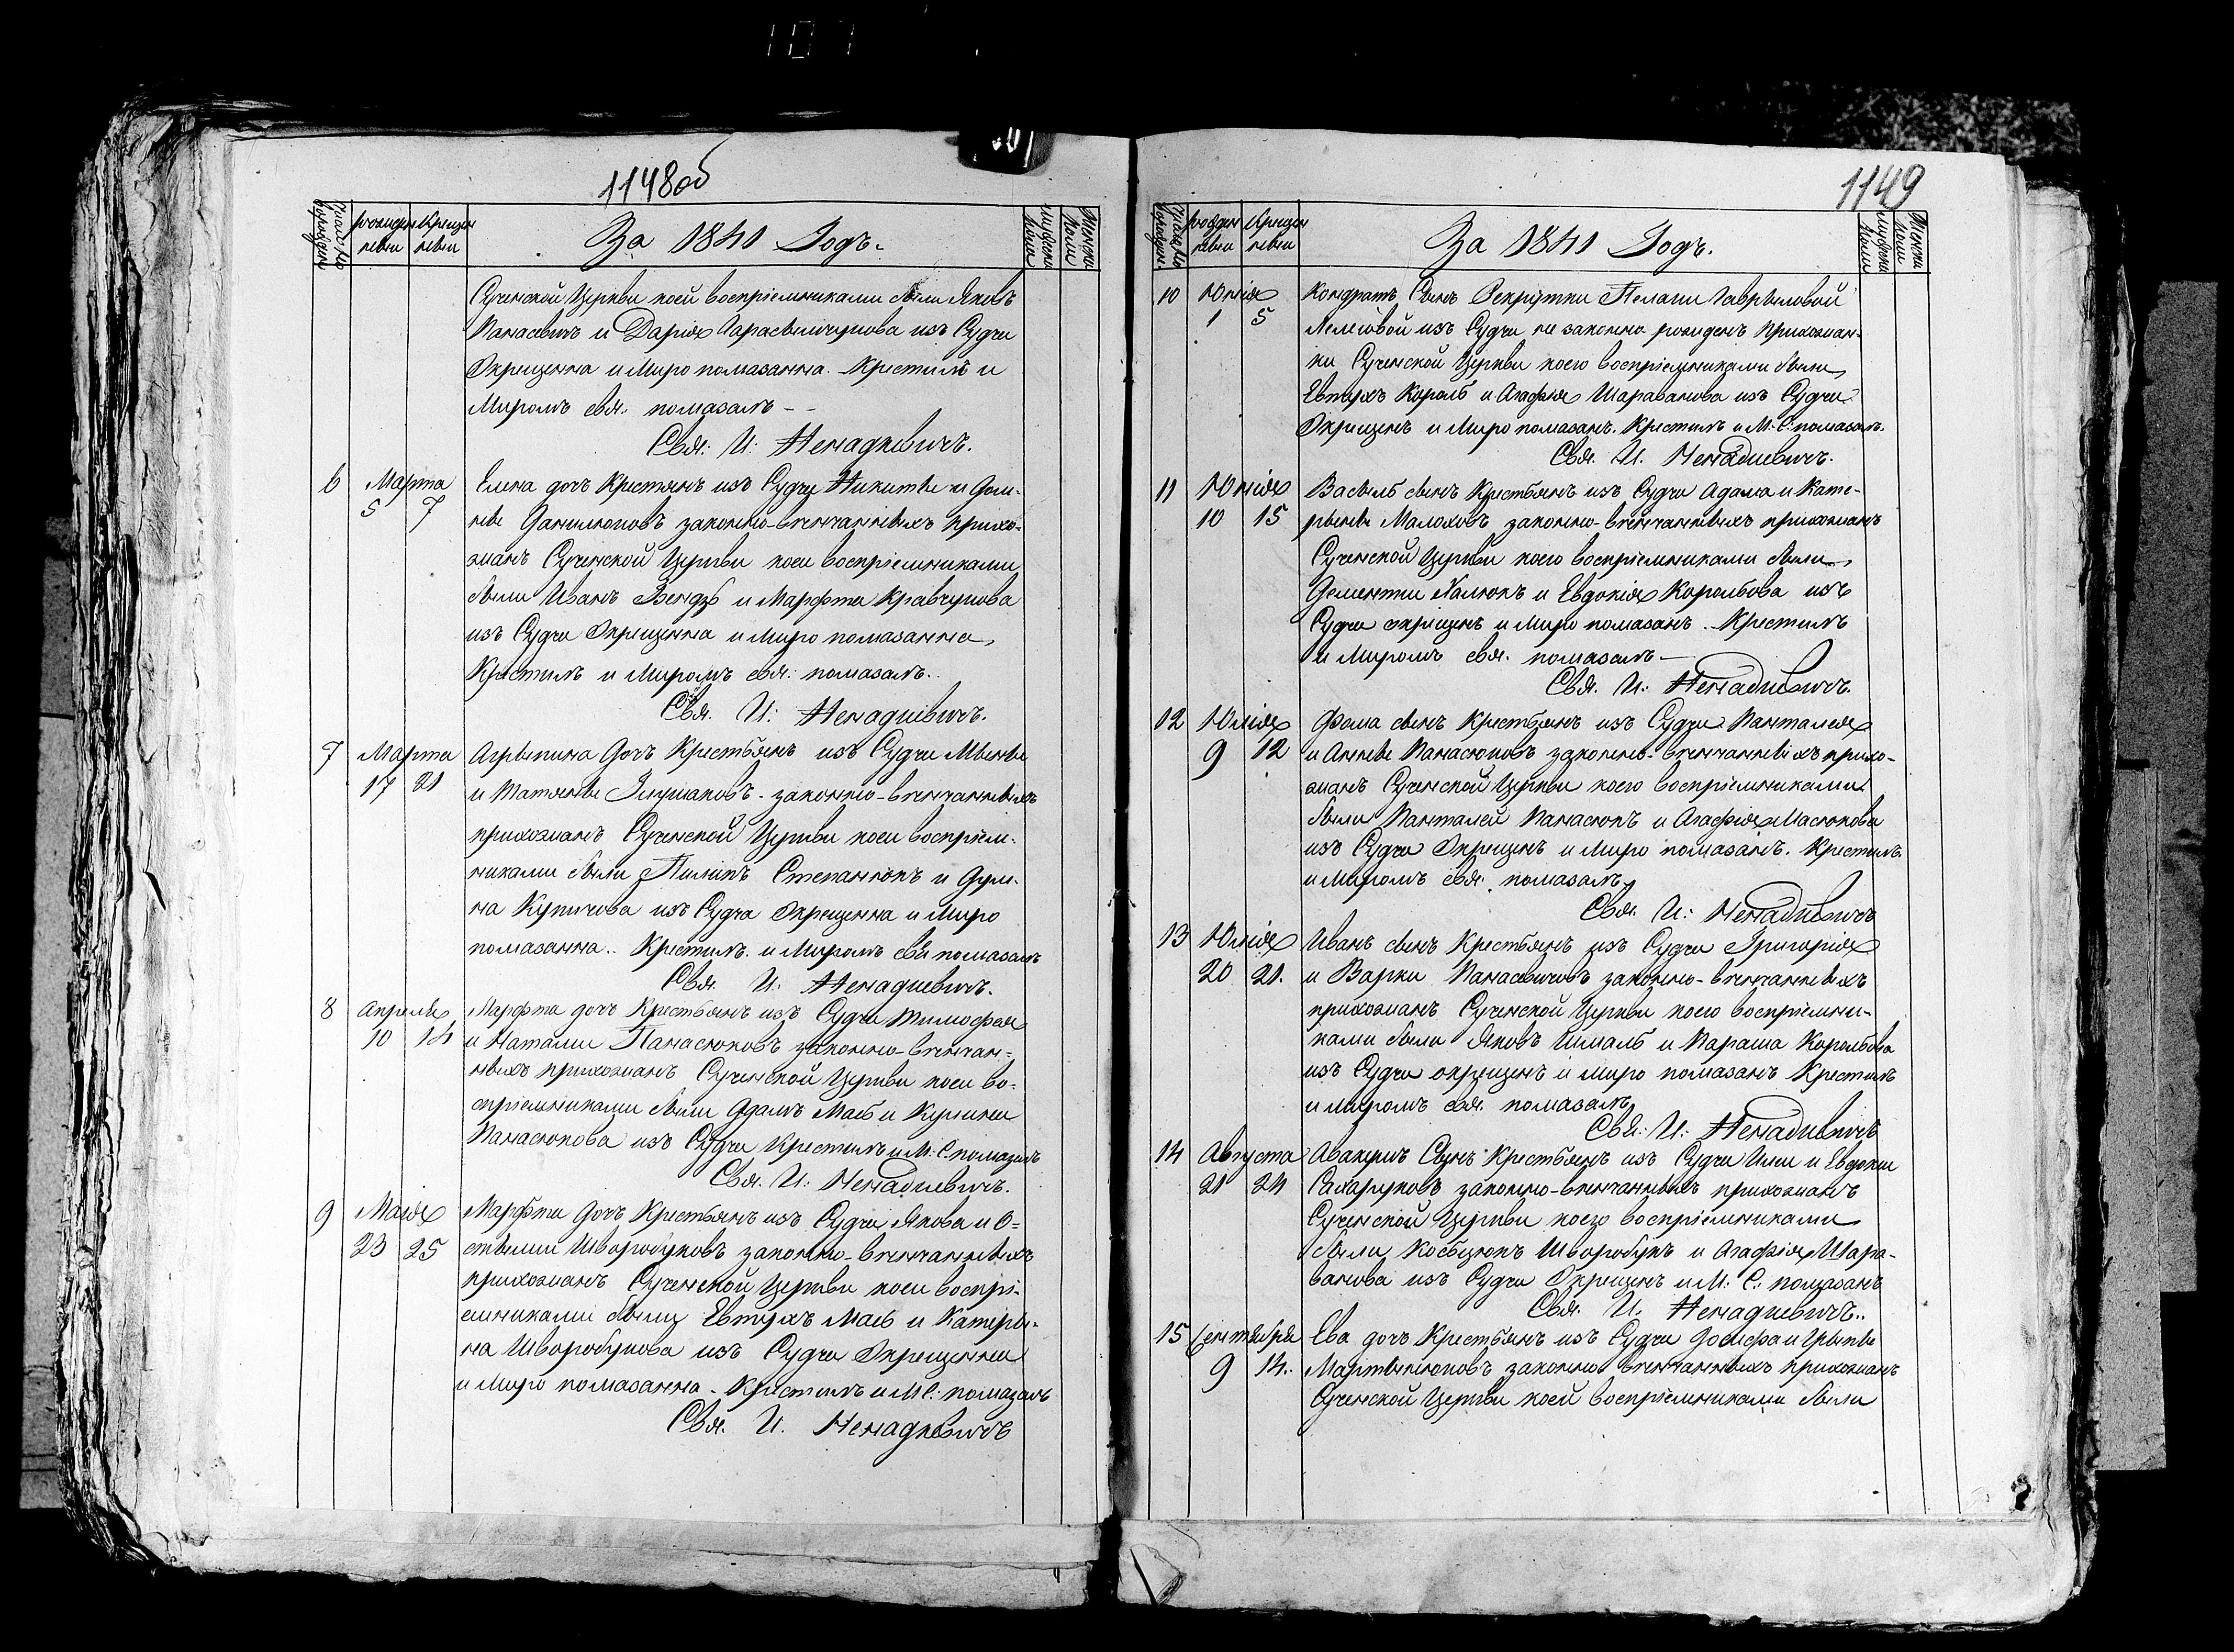 1148об
За 1841 Годъ.
Сученской Церкви коей воспріемниками были Яковъ
Панасевичъ и Дарія из Судчи
Окрещенна и Миро помазанна. Крестилъ и
Миромъ свя: помазалъ - -
Свя: И: Ненадкевичъ.
6 Марта 5 7 Елена дочъ Крестянъ изъ Судчи Никиты и Дом-
ны Данилюковъ законно-венчанныхъ прихо-
жанъ Сученской Церкви коеи воспріемниками
были Иванъ и Марфта Кравчукова
изъ Судчи Окрещенна и Миро помазанна,
Крестилъ и Миромъ свя: помазалъ.
Свя. И: Ненадкевичъ.
7 Марта 17 21 Агрыпина Дочъ Крестьянъ изъ Судчи
и Татяны законно-венчанныхъ
прихожанъ Сученской Церкви коеи воспріем-
никами были Пилипъ Степанюкъ и
на изъ Судча Окрещенна и Миро
помазанна.. Крестилъ и Миромъ свя помазалъ
Свя. И. Ненадкевичъ.
8 Апреля 10 14 Марфта дочъ Крестьянъ изъ Судчи Тимофея
и Натали Панасюковъ законно-венчан-
ныхъ прихожанъ Сученской Церкви коеи во-
спріемниками были Адамъ Мась и
Панасюкова изъ Судчи Крестилъ и М: С. помазалъ
Свя. И: Ненадкевичъ.
9 Маія 23 25 Марфта Дочъ Крестьянъ изъ Судчи Якова и О-
законно-венчанныхъ
прихожанъ Сученской Церкви коеи воспрі-
емниками были Евтухъ Мась и Катеры-
на изъ Судчи Окрещенна
и Миро помазанна. Крестилъ и М С: помазалъ
Свя. И. Ненадкевичъ
1149
За 1841 Годъ.
10 Юнія 1 5 Кондратъ Сынъ Рекрутки Пелагии Гаврыловой
изъ Судчи не законно рожденъ прихожан-
ки Сученской Церкви коего воспріемниками были
Евтухъ Король и Агафія Шарабанова изъ Судчи
Окрещенъ и Миро помазанъ. Крестилъ и М: С: помазалъ.
Свя. И. Ненадкевичъ.
11 Юнія 10 15 Васыль сынъ Крестьянъ изъ Судчи Адама и Кате-
рыны Малоховъ законно-венчанныхъ прихожанъ
Сученской Церкви коего воспріемниками были
Дементии и Евдокія Корольова изъ
Судчи окрещенъ и Миро помазанъ. Крестилъ
и Миромъ свя. помазалъ —
Свя. И: Ненадкевичъ.
12 Юлія 9 12 Фома сынъ Крестьянъ изъ Судчи Панталея
и Анны Панасюковъ законно-венчанныхъ прихо-
жанъ Сученской Церкви коего воспріемниками
были Панталей Панасюкъ и Агафія Масюкова
изъ Судчи Окрещенъ и Миро помазанъ. Крестилъ
и Миромъ свя: помазалъ
Свя. И: Ненадкевичъ
13 Юлія 20 21. Иванъ сынъ Крестьянъ изъ Судчи Григорія
и Варки Панасевичовъ законно-венчанныхъ
прихожанъ Сученской Церкви коего воспріемни-
ками были Яковъ Шмаль и Параша Корольова
изъ Судчи окрещенъ и миро помазанъ Крестилъ
и миромъ свя. помазалъ
Свя: И: Ненадкевичъ
14 Августа 21 24 Авакумъ Сынъ Крестьянъ изъ Судчи Илии и Евдокии
законно-венчанныхъ прихожанъ
Сученской Церкви коего воспріемниками
были и Агафія Шара-
банова изъ Судчи Окрещенъ и М: С: помазанъ
Свя. И. Ненадкевичъ..
15 Сентября 9 14. Ева дочъ Крестьянъ изъ Судчи
Мартынюковъ законно венчанныхъ прихожанъ
Сученской Церкви коей воспріемниками были